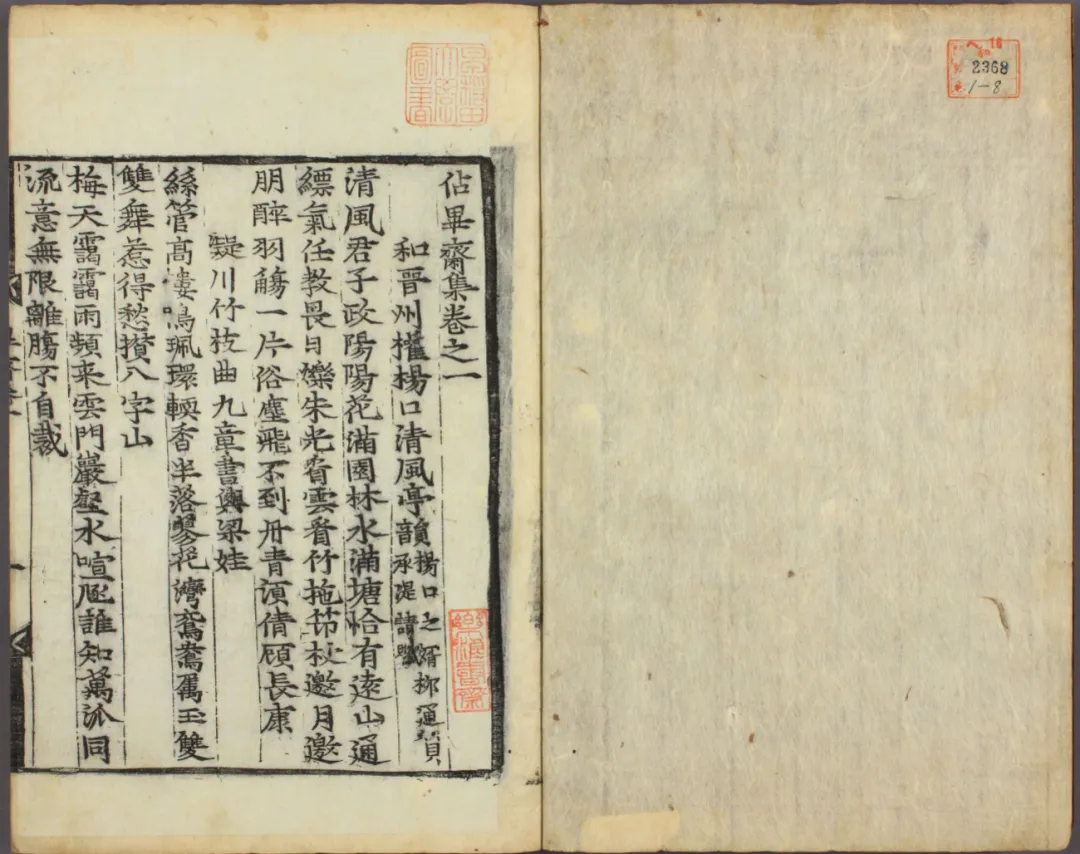 2368
1-8
佔畢齋集卷之一
和晋州權楊口清風亭韻楊口之婿柳運賛承湜請
清風君子政陽陽花滿園林水滿塘恰有遠山通
縹氣任教畏日爍朱光看雲看竹拖筇杖邀月邀
朋醉羽觴一片俗塵飛不到丹青湏倩顧長康
凝川竹枝曲九章書與梁娃
絲管高樓鳴珮環輭香半落蓼花灣鴛鴦屬玉雙
雙舞惹得愁攢八字山
梅天靄靄雨頻来雲門巖壑水喧豗誰知萬派同
流意無限離膓不自裁